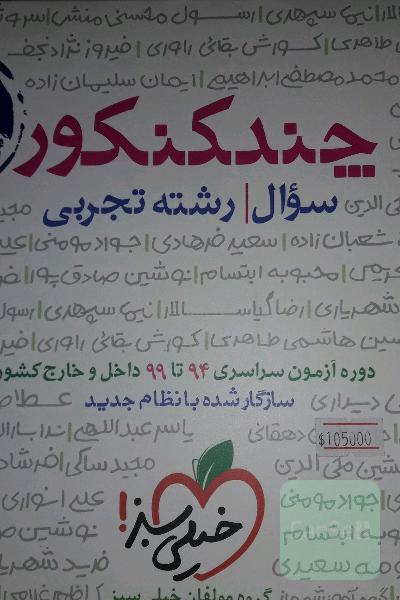 الار|نیما سپهری|رسول محسنی منش|سرو
طاهری|کورش بقائی راوری|فیروز نژادنجف
محمد مصطفی ابراهیمی|ایمان سلیمان زاده
چند کنکور
سؤال|رشته تجربی
محی الدین
مجید
شعبان زاده|سعید فرهادی|جواد مومنی|علی
محبوبه ابتسام|نوشین صادق پور|فر
شهریاری|رضا گیاسالار|نیما سپهری|رسول
سین هاشمی طاهری|کورش بقائی راوری|فیر
دوره آزمون سراسری ۹۴ تا ۹۹ داخل و خارج کشور
سازگار شده با نظام جدید
دیدیداری
عطا
دهقانی
یاسر عبداللهی|ندا بابال
$105000
شتین محی الدین
مجید ساکی|فرشاد
خیلی سبز!
علی انواری
جواد مومنی
نوشین ص
وبه ابتسام
فرید شهر
سعیدی
گروه مولفان خیلی سبز